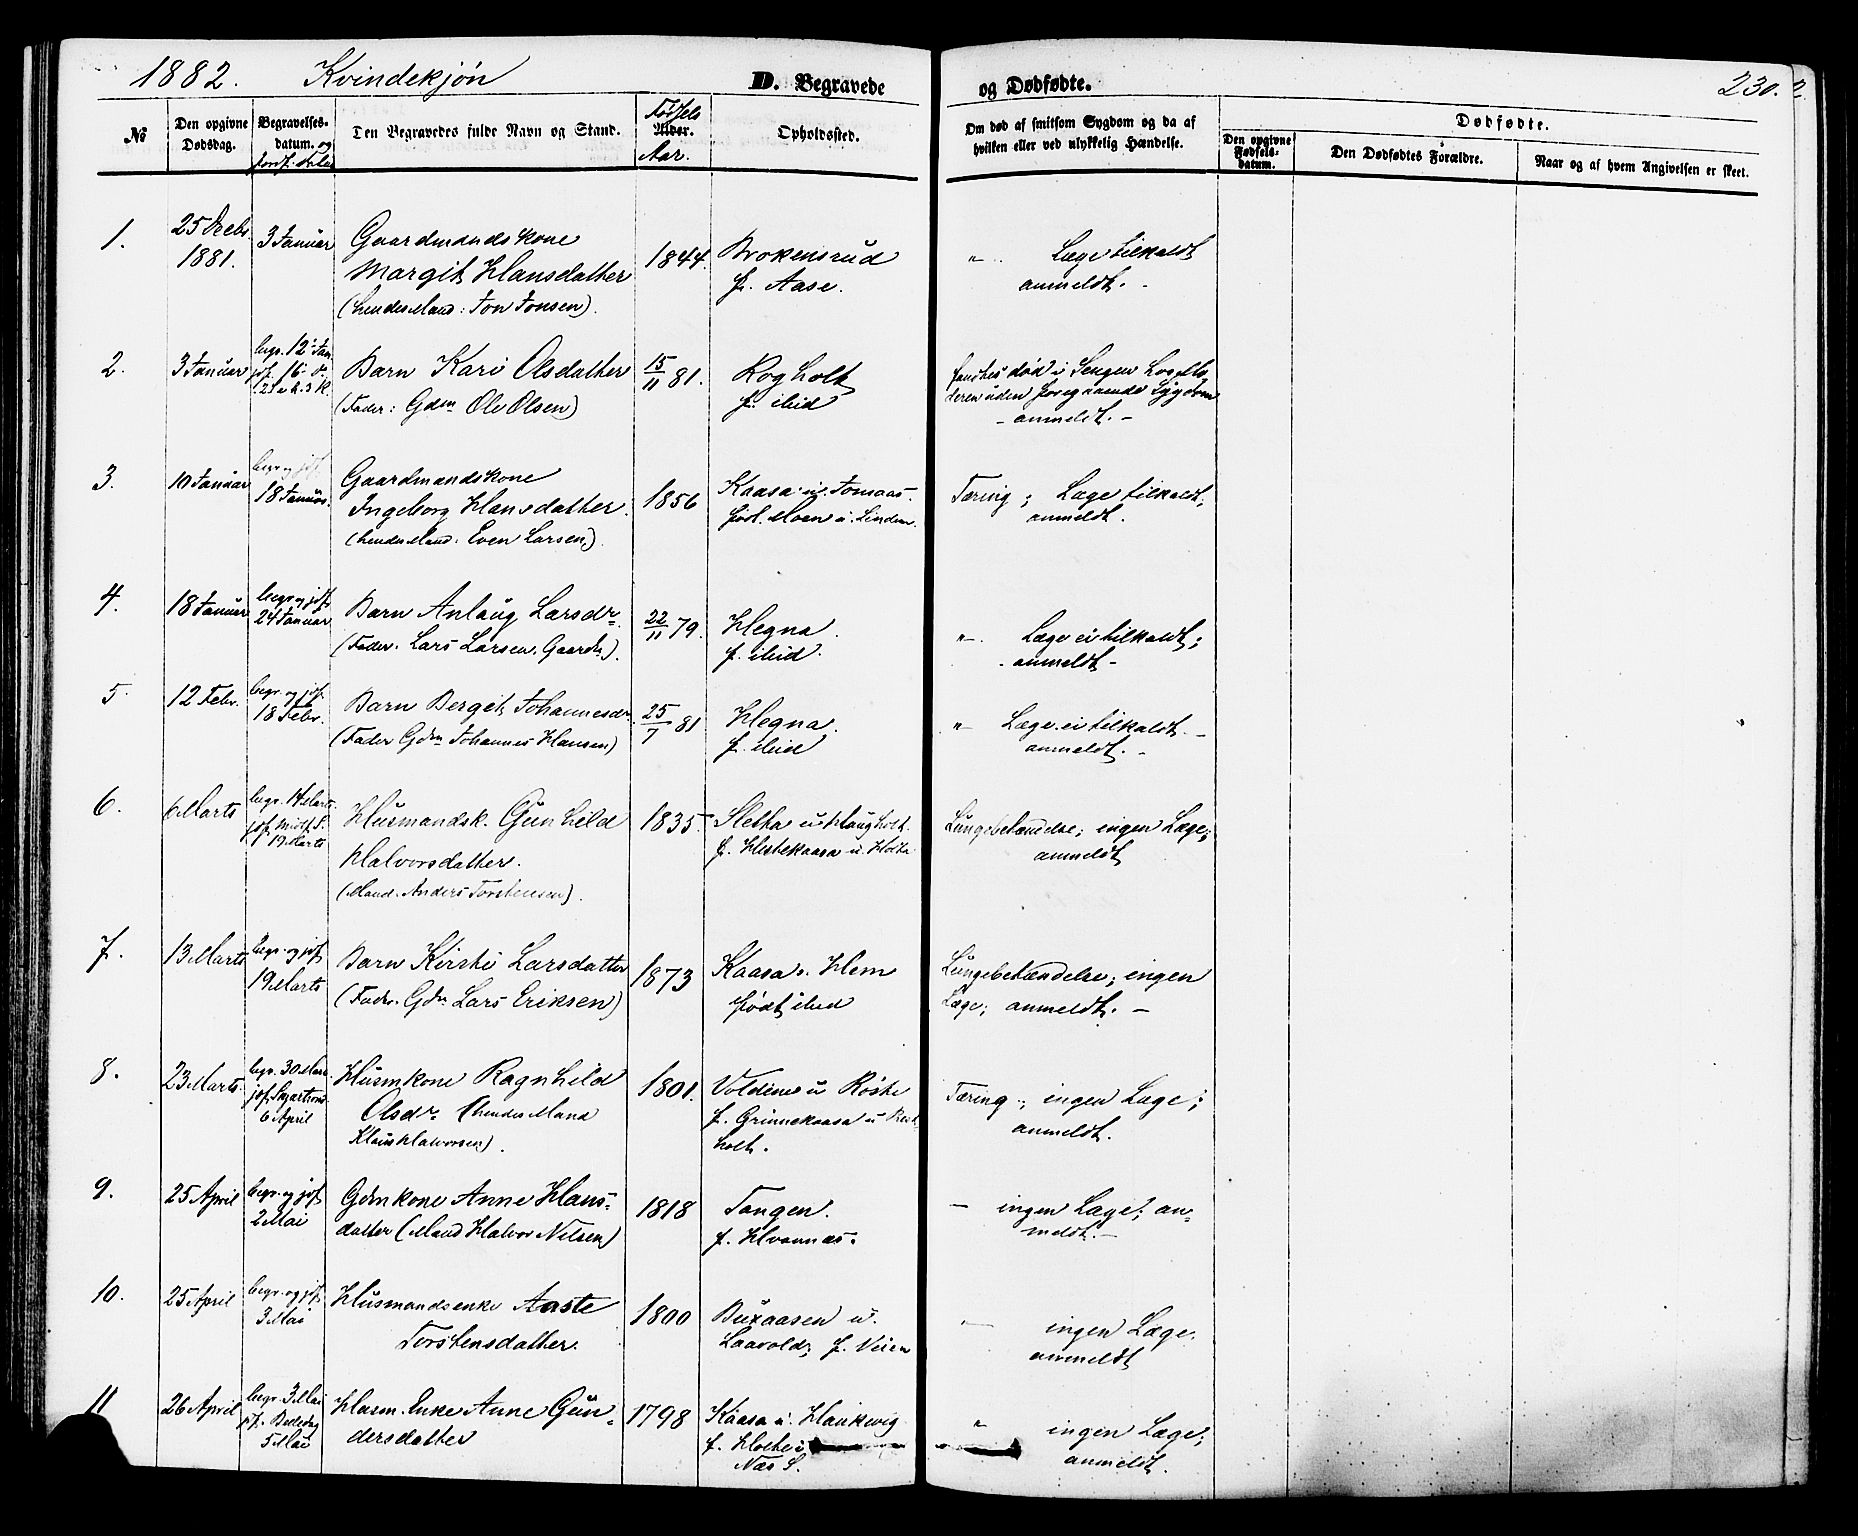 1882. Kvindekjøn D. Begravede og Dødfødte. 230.
№
Den opgivne Dødsdag.
Begravelses-datum. og
Den Begravedes fulde Navn og Stand.
Fødsels
Alder.
Aar.
Opholdssted.
Om død af smitsom Sygdom og da af
hvilken eller ved ulykkelig Hændelse.
Dødfødte.
Den opgivne Fødsels-datum.
Den Dødfødtes Forældre.
Naar og af hvem Angivelsen er skeet.
1. 25 Decbr. 3 Januar Gaardmandskone 1844. Brokensrud " Læge tilkaldt
1881. Margit Hansdatter f. Aase. anmeldt. -
(hendes Mand: Jon Jonsen).
2. 3 Januar begr. 12 Jan. Barn Kari Olsdatter 15/11 81. Rogholt fandtes død i Sengen hos
jdf. 16. (Fader: Gdm Ole Olsen) f. ibid uden foregaaende Sygdom
- anmeldt. -
3. 10 Januar begr. og jdf. Gaardmandskone 1856 Kaasa u. Tomaas. Tæring; Læge tilkaldt;
18 Januar. Ingeborg Hansdatter. Moen u. Linden anmeldt.
(hendes Mand: Even Larsen)
4. 18 Januar begr. og jdf. Barn Anlaug Larsdr. 22/11 79. Hegna. ". Læge ei tilkaldt;
24 Januar (Fader. Lars Larsen. Gaardm). f. ibid. - anmeldt -
5. 12 Febr. begr. og jdf. Barn Bergit Johannesdr. 25/7 81 Hegna. " Læge ei tilkaldt. -
18 Febr. (Fader Gdm Johannes Hansen) f. ibid anmeldt. -
6. 6 Marts begr. 14 Marts. Husmandsk. Gunhild 1835. Sletta u. Haugholt. Lungebetændelse; ingen Læge;
jdf. Midf. S. Halvorsdatter. f. Hestekaasa u. Holta anmeldt
19 Marts (Mand. Anders Torstensen).
7. 13 Marts begr. og jdf. Barn Kirsti Larsdatter 1873 Kaasa u. Hem Lungebetændelse; ingen
19 Marts (Fader. Gdm Lars Eriksen) født ibid Læge; anmeldt. -
8. 23 Marts. begr. 30 Marts. Husmkone Ragnhild 1801. Voldene u Røste Tæring; ingen Læge;
jdf. Skjærtorsd. Olsdr. (hendes Mand f. Grinnekaasa u anmeldt.
6 April Halvorsen). holt.
9. 25 April begr. og jdf. Gdmkone Anne Hans- 1818 Tangen. - ingen Læge; an-
2 Mai datter (Mand Halvor Nilsen) f. Hvannæs. meldt. -
10. 25 April begr. og jdf. Husmandsenke Aaste 1800 Buxaasen u. " ingen Læge.
3 Mai Torstensdatter. Laavold; f. Veien anmeldt
11 26 April begr. 3 Mai Husm. Enke Anne Gun- 1798 Kaasa u. Haukevig " ingen Læge;
jdf. Bededag dersdatter f. Holte i anmeldt.
5 Mai Næs S.